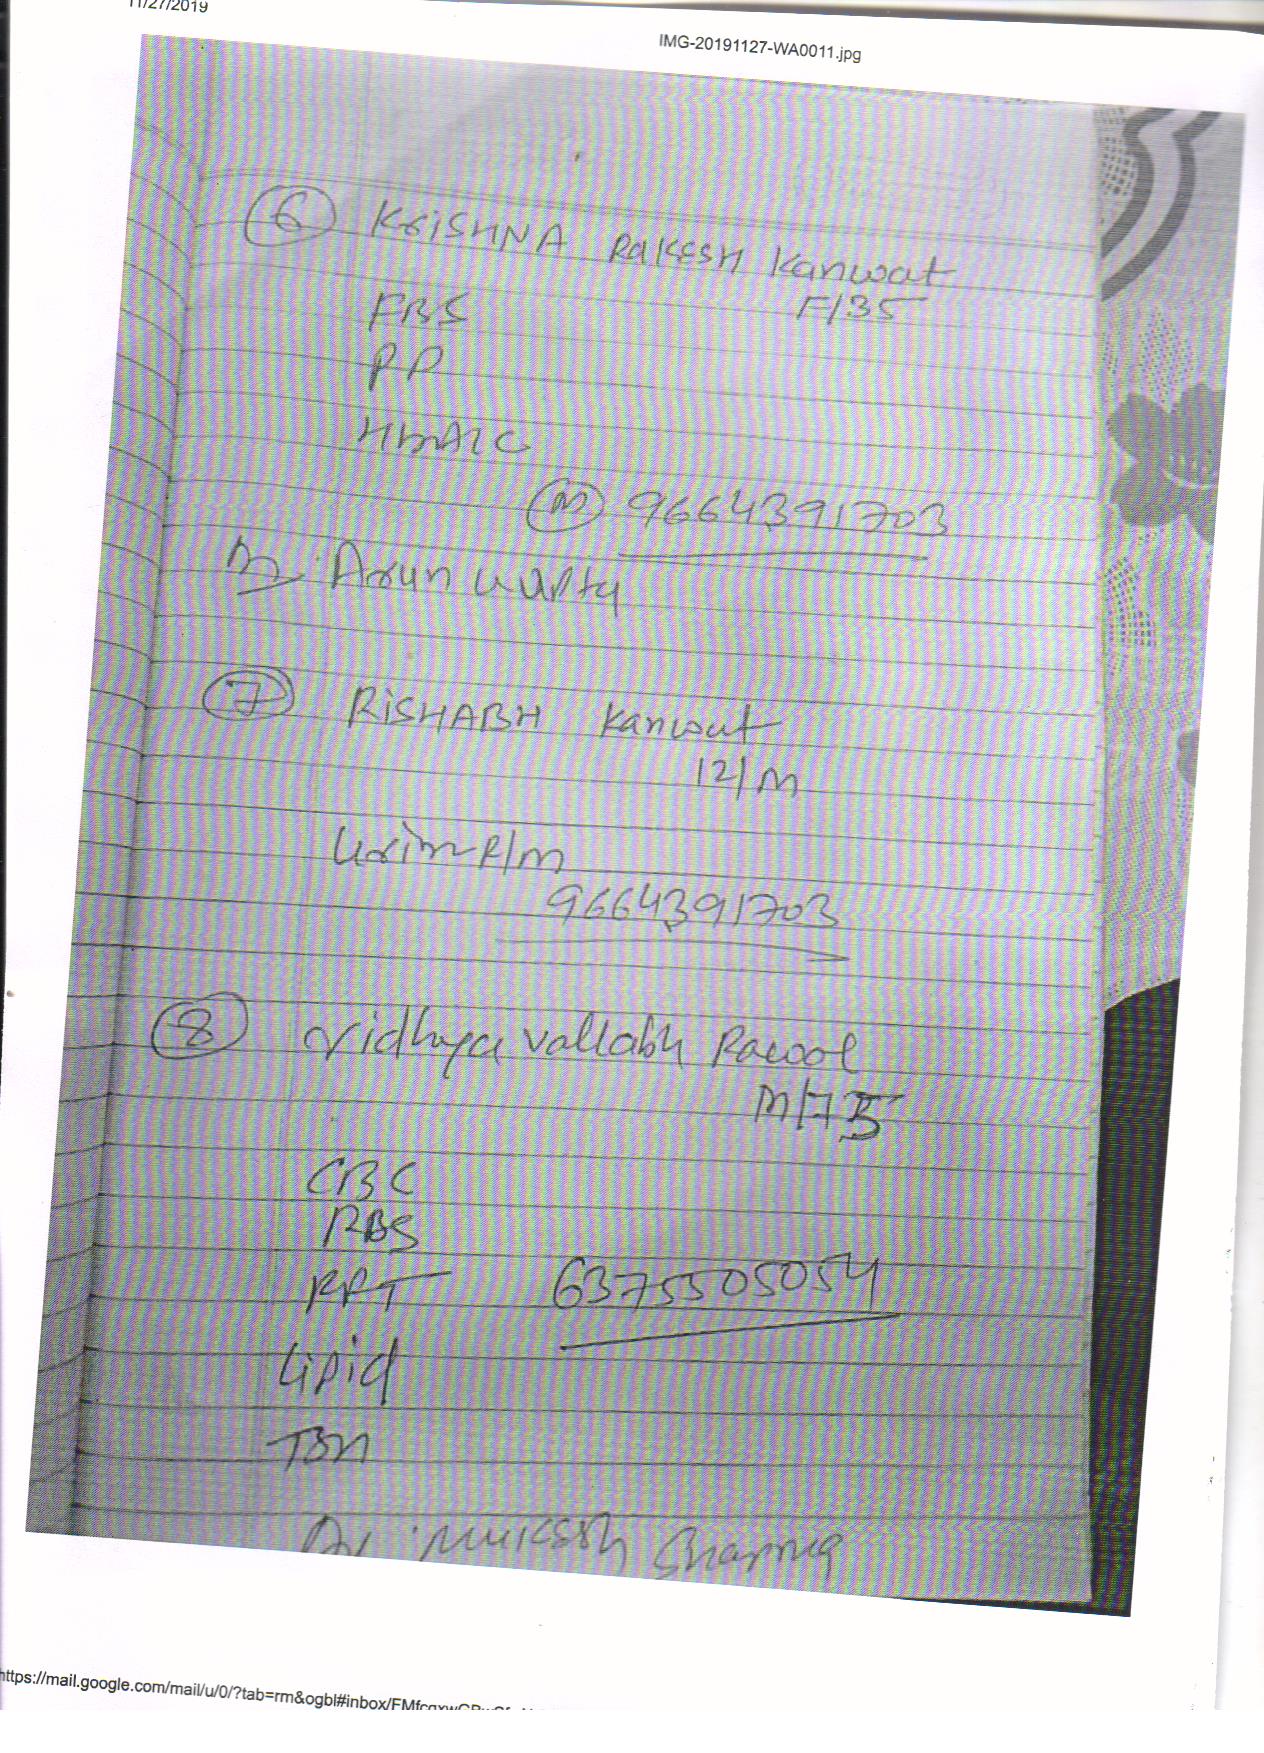 11/27/2019
IMG-20191127-WA0011.jpg
6 KRiSHNA RAKESH Kanwat
F/35
FBS
PP
HbA1C
M 9664391703
Dr Arun Gupta
7 RiSHABH Kanwat
12/M
Urine R/M
9664391703
8 Vidhya Vallabh Rawol
M/75
CBC
RBS
RFT 6375505054
Lipid
Dr. Mukesh Sharma
https://mail.google.com/mail/u/0/?tab=rm&ogbl#inbox/